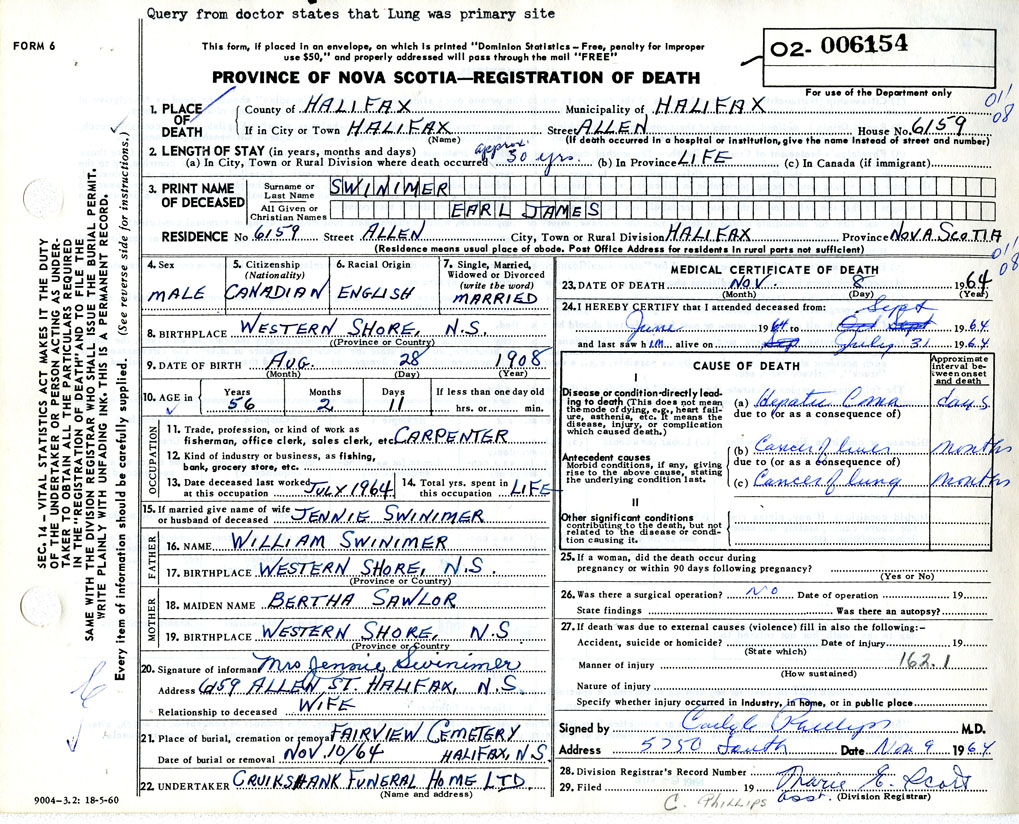 Query from doctor states that Lung was primary site
FORM 6
This form, if placed in an envelope, on which is printed "Dominion Statistics – Free, penalty for improper
use $50," and properly addressed will pass through the mail "FREE"
02- 006154
For use of the Department only
PROVINCE OF NOVA SCOTIA—REGISTRATION OF DEATH
011
08
1. PLACE OF DEATH
County of HALIFAX Municipality of HALIFAX
If in City or Town HALIFAX Street ALLEN House No. 6159
(Name) (If death occurred in a hospital or institution, give the name instead of street and number)
2. LENGTH OF STAY (in years, months and days)
(a) In City, Town or Rural Division where death occurred approx. 30 yrs. (b) In Province LIFE (c) In Canada (if immigrant)
3. PRINT NAME OF DECEASED
Surname or Last Name SWINIMER
All Given or Christian Names EARL JAMES
RESIDENCE No 6159 Street ALLEN City, Town or Rural Division HALIFAX Province NOVA SCOTIA
(Residence means usual place of abode. Post Office Address for residents in rural parts not sufficient)
011
08
4. Sex MALE
5. Citizenship (Nationality) CANADIAN
6. Racial Origin ENGLISH
7. Single, Married, Widowed or Divorced (write the word) MARRIED
8. BIRTHPLACE WESTERN SHORE, N.S.
(Province or Country)
9. DATE OF BIRTH AUG. 28 1908
(Month) (Day) (Year)
10. AGE in Years 56 Months 2 Days 11 If less than one day old hrs. or min.
OCCUPATION
11. Trade, profession, or kind of work as
fisherman, office clerk, sales clerk, etc CARPENTER
12. Kind of industry or business, as fishing,
bank, grocery store, etc.
13. Date deceased last worked at this occupation JULY 1964 14. Total yrs. spent in this occupation LIFE
15. If married give name of wife or husband of deceased JENNIE SWINIMER
FATHER
16. NAME WILLIAM SWINIMER
17. BIRTHPLACE WESTERN SHORE, N.S.
(Province or Country)
MOTHER
18. MAIDEN NAME BERTHA SAWLOR
19. BIRTHPLACE WESTERN SHORE, N.S
(Province or Country
20. Signature of informant Mrs Jennie Swinimer
Address 6159 ALLEN ST. HALIFAX, N.S.
Relationship to deceased WIFE
21. Place of burial, cremation or removal FAIRVIEW CEMETERY
Date of burial or removal NOV. 10/64 HALIFAX, N.S.
22. UNDERTAKER CRUIKSHANK FUNERAL HOME LTD.
(Name and address)
9004-3.2: 18-5-60
MEDICAL CERTIFICATE OF DEATH
23. DATE OF DEATH NOV. 8 1964
(Month) (Day) (Year)
24. I HEREBY CERTIFY that I attended deceased from: Sept
June 1964 to Oct Sept 1964
and last saw him alive on Sep July 31 1964
CAUSE OF DEATH
Approximate interval between onset and death
I
Disease or condition directly leading to death (This does not mean the mode of dying, e.g., heart failure, asthenia, etc. It means the disease, injury, or complication which caused death.)
(a) Hepatic Coma days
due to (or as a consequence of)
Antecedent causes
Morbid conditions, if any, giving rise to the above cause, stating the underlying condition last.
(b) Cancer of liver months
due to (or as a consequence of)
(c) Cancer of lung months
II
Other significant conditions
contributing to the death, but not related to the disease or condition causing it.
25. If a woman, did the death occur during
pregnancy or within 90 days following pregnancy?
(Yes or No)
26. Was there a surgical operation? No Date of operation 19
State findings Was there an autopsy?
27. If death was due to external causes (violence) fill in also the following:–
Accident, suicide or homicide? Date of injury 19
(State which)
Manner of injury 162.1
(How sustained)
Nature of injury
Specify whether injury occurred in industry, in home, or in public place
Signed by Carlyle Phillips M.D.
Address 5750 South Date Nov 9 1964
28. Division Registrar's Record Number
29. Filed 19 Marie E. Scott
asst. (Division Registrar)
C. PHILLIPS
SEC. 14 – VITAL STATISTICS ACT MAKES IT THE DUTY
OF THE UNDERTAKER OR PERSON ACTING AS UNDER-
TAKER TO OBTAIN ALL THE PARTICULARS REQUIRED
IN THE "REGISTRATION OF DEATH" AND TO FILE THE
SAME WITH THE DIVISION REGISTRAR WHO SHALL ISSUE THE BURIAL PERMIT.
WRITE PLAINLY WITH UNFADING INK. THIS IS A PERMANENT RECORD.
Every item of information should be carefully supplied. (See reverse side for instructions.)